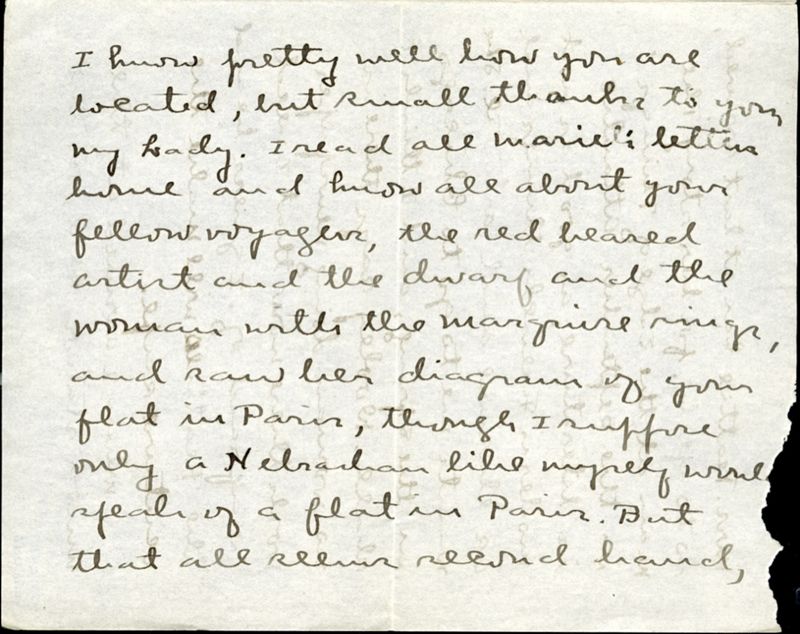 I know pretty well how you are
located, but small thanks to you,
my Lady. I read all Marie's letters
home and know all about your
fellow voyagers, the red heared
artist and the dwarf and the
woman with the marquise rings,
and saw her diagram of your
flat in Paris, though I suppose
only a Nebraskan like myself would
speak of a flat in Paris. But
that all seems second hand,